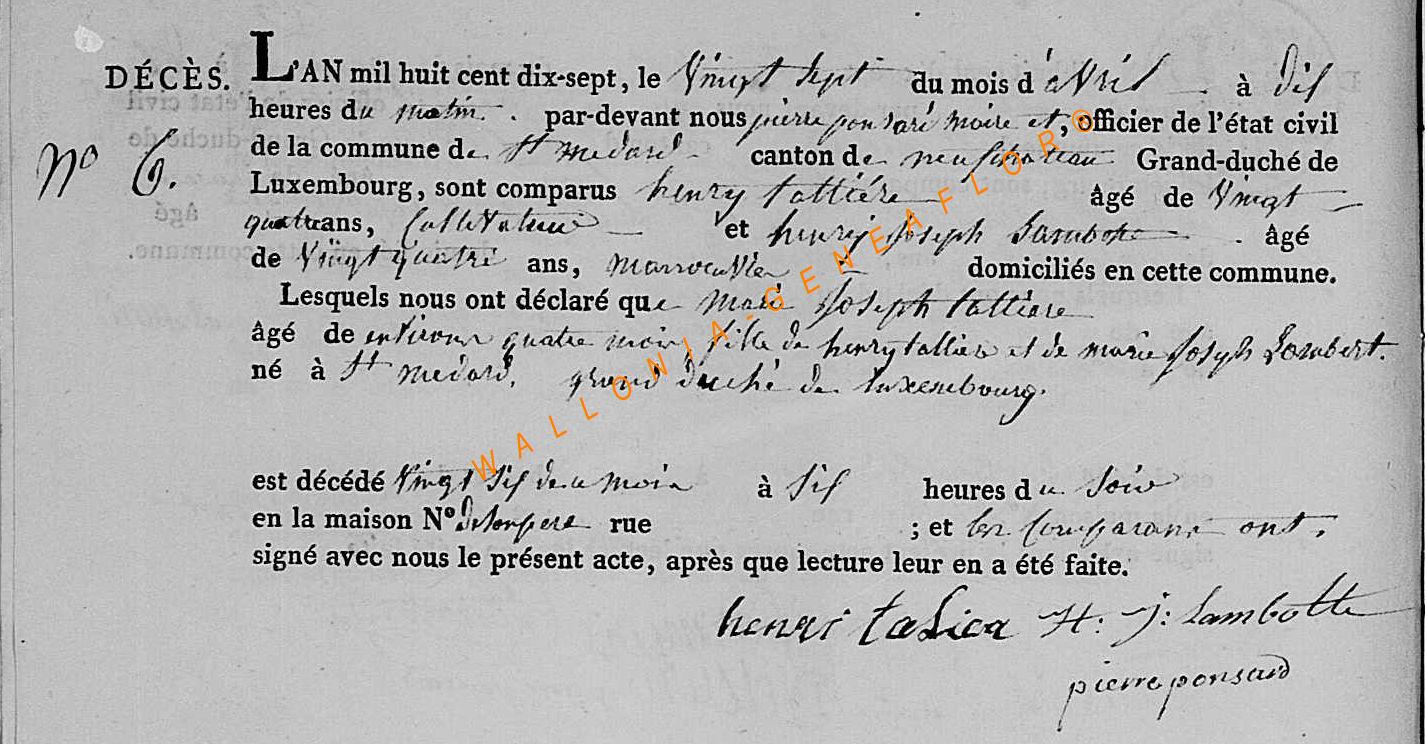 DÉCÈS. L'AN mil huit cent dix-sept, le Vingt Sept du mois d'avril à dis
heures du matin. par-devant nous pierre ponsard maire et, officier de l'état civil
N° 6. de la commune de St medard canton de neufchateau Grand-duché de
Luxembourg, sont comparus henry tattiére âgé de Vingt
quatre ans, Cultivateur et henry Joseph Lambote âgé
de Vingt quatre ans, domiciliés en cette commune.
Lesquels nous ont déclaré que marie Joseph tattiere
âgé de environ quatre mois fille de henry tattiere et de marie Joseph Lambert.
né à St medard. grand duché de luxembourg.
est décédé Vingt Sis de ce mois à Sis heures du Soir
en la maison N° de Son pere rue ; et les Comparant ont,
signé avec nous le présent acte, après que lecture leur en a été faite.
henri H: J: Lambotte
pierre ponsard
WALLONIA-GENEAFLOR©